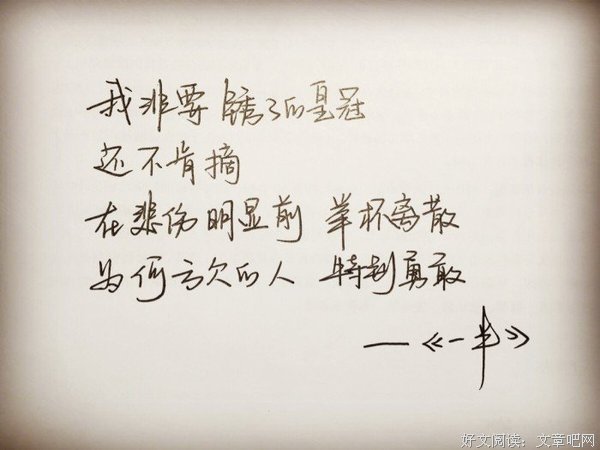 我非要 锈了的皇冠
还不肯摘
在悲伤明显前 举杯离散
为何亏欠的人 特别勇敢
—《一半》
好文阅读：文章吧网